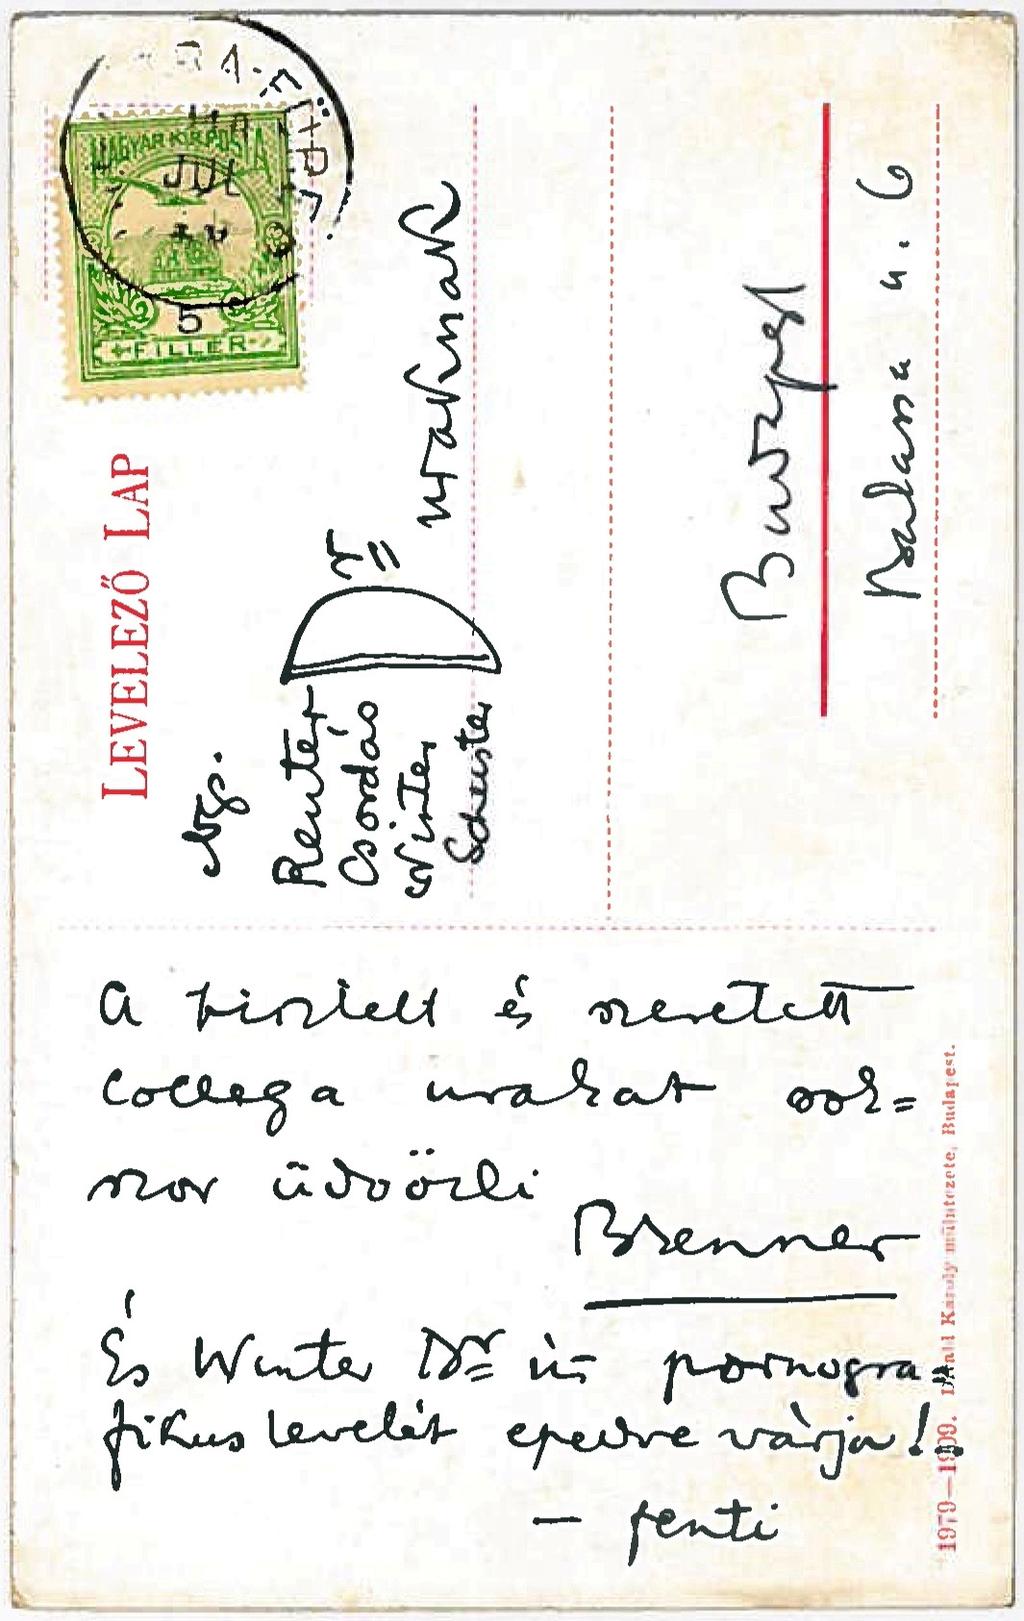 MAGYAR KIR. POSTA
JUL
5
FILLER
LEVELEZŐ LAP
Ngs.
Reuter
Csordás
Winter
Schuster
Dr
uraknak
Budapest
Balassa u. 6
A tisztelt és szeretett
collega urakat sok=
szor üdvözli
Brenner
És Winter Dr úr pornogra=
fikus levelét epedve várja!
– fenti
1979—1909. Divald Károly műintézete, Budapest.